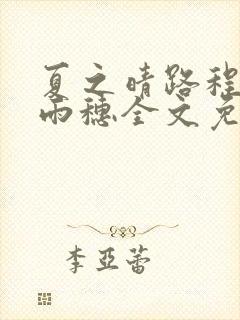 夏之晴路程
雨穗全文免
李亞蕾